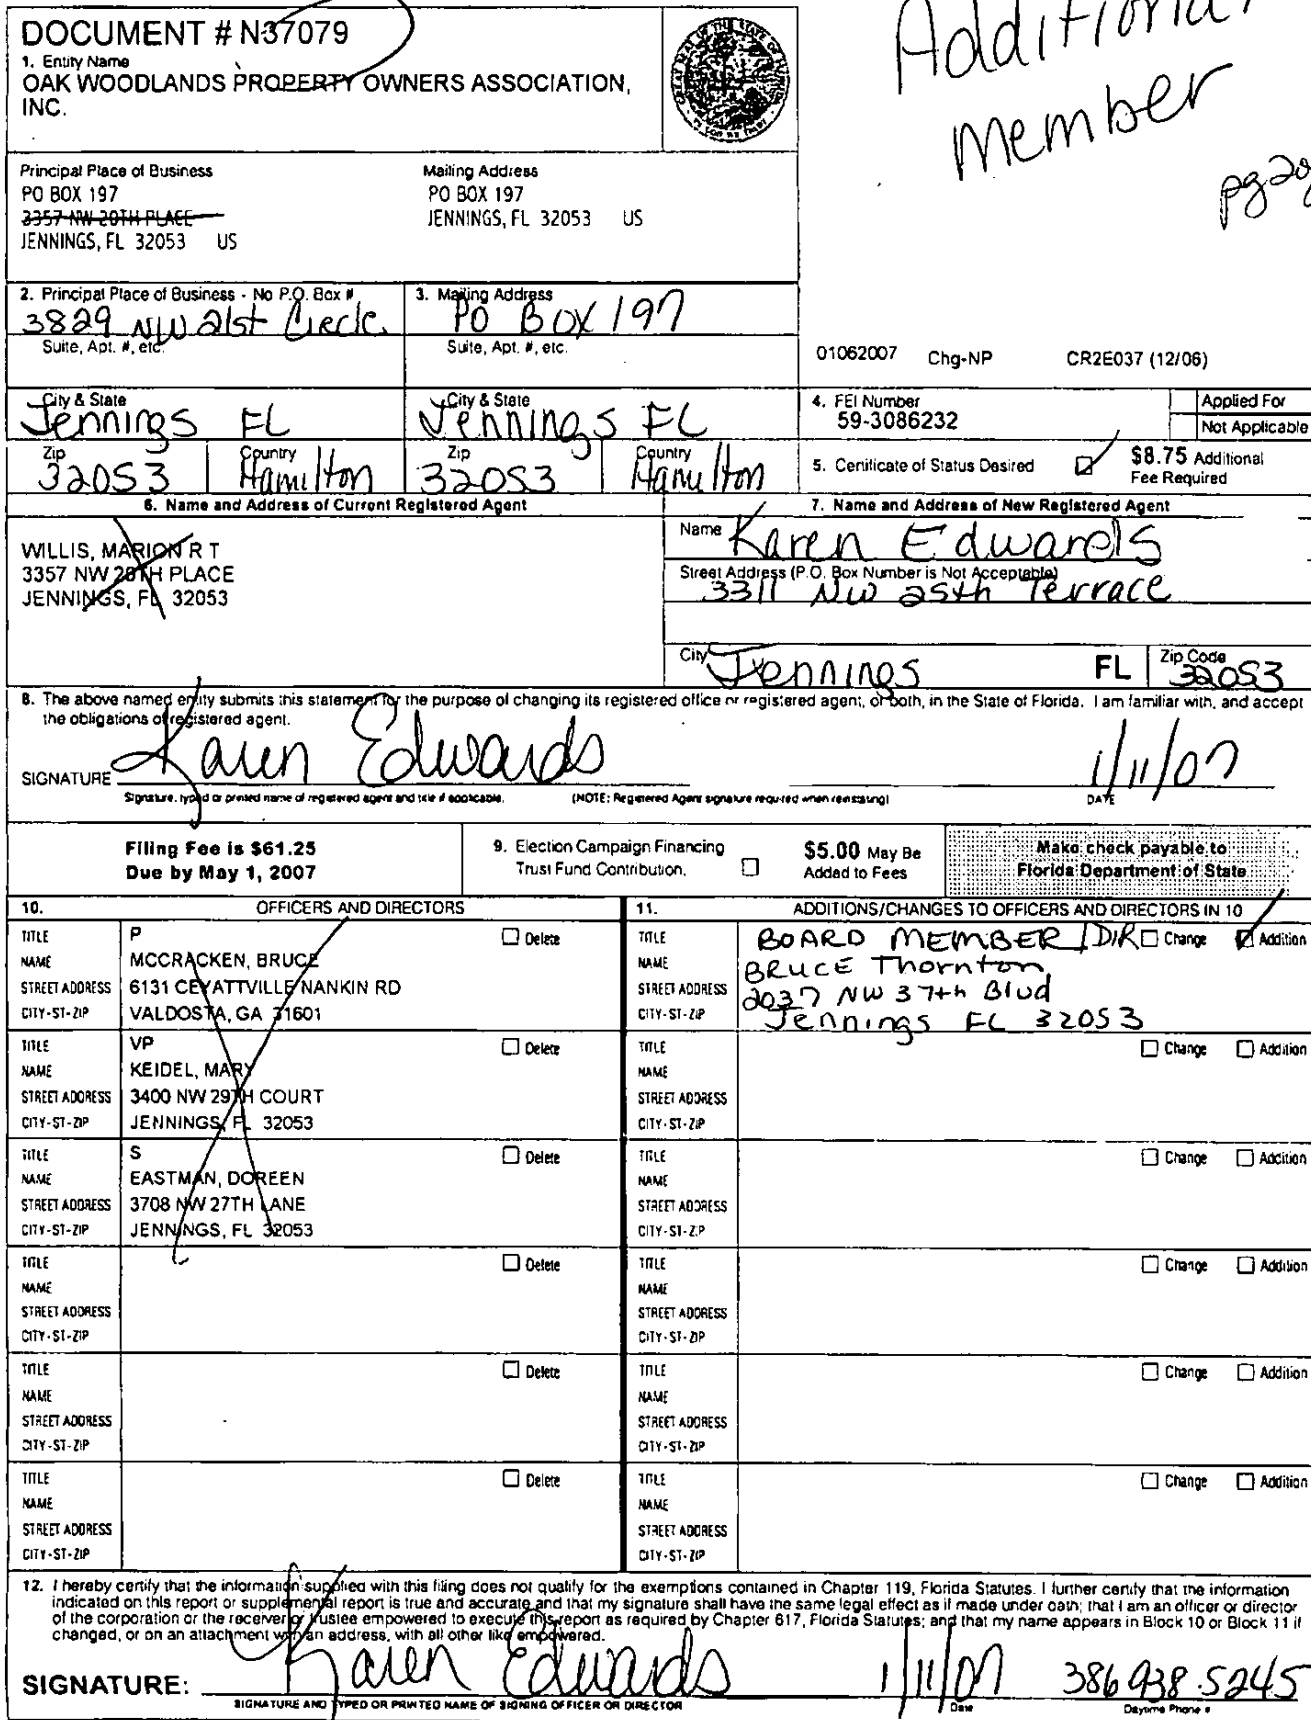 Additional
Member
pg 2 of
DOCUMENT # N37079
1. Entity Name
OAK WOODLANDS PROPERTY OWNERS ASSOCIATION,
INC.
Principal Place of Business
PO BOX 197
3357 NW 20TH PLACE
JENNINGS, FL 32053 US
Mailing Address
PO BOX 197
JENNINGS, FL 32053 US
2. Principal Place of Business - No P.O. Box #
3829 NW 21st Circle
Suite, Apt. #, etc.
3. Mailing Address
PO BOX 197
Suite, Apt. #, etc.
01062007 Chg-NP CR2E037 (12/06)
City & State
Jennings FL
City & State
Jennings FL
Zip
32053
Country
Hamilton
Zip
32053
Country
Hamilton
4. FEI Number
59-3086232
Applied For
Not Applicable
5. Certificate of Status Desired
$8.75 Additional
Fee Required
6. Name and Address of Current Registered Agent
WILLIS, MARION R T
3357 NW 20TH PLACE
JENNINGS, FL 32053
7. Name and Address of New Registered Agent
Name Karen Edwards
Street Address (P.O. Box Number is Not Acceptable)
3311 NW 25th Terrace
City Jennings FL Zip Code 32053
8. The above named entity submits this statement for the purpose of changing its registered office or registered agent, or both, in the State of Florida. I am familiar with, and accept
the obligations of registered agent.
SIGNATURE Karen Edwards 1/11/07
Signature, typed or printed name of registered agent and title if applicable. (NOTE: Registered Agent signature required when reinstating) DATE
Filing Fee is $61.25
Due by May 1, 2007
9. Election Campaign Financing
Trust Fund Contribution.
$5.00 May Be
Added to Fees
Make check payable to
Florida Department of State
10. OFFICERS AND DIRECTORS
TITLE P Delete
NAME MCCRACKEN, BRUCE
STREET ADDRESS 6131 CEYATTVILLE NANKIN RD
CITY-ST-ZIP VALDOSTA, GA 31601
TITLE VP Delete
NAME KEIDEL, MARY
STREET ADDRESS 3400 NW 29TH COURT
CITY-ST-ZIP JENNINGS, FL 32053
TITLE S Delete
NAME EASTMAN, DOREEN
STREET ADDRESS 3708 NW 27TH LANE
CITY-ST-ZIP JENNINGS, FL 32053
TITLE Delete
NAME
STREET ADDRESS
CITY-ST-ZIP
TITLE Delete
NAME
STREET ADDRESS
CITY-ST-ZIP
TITLE Delete
NAME
STREET ADDRESS
CITY-ST-ZIP
11. ADDITIONS/CHANGES TO OFFICERS AND DIRECTORS IN 10
TITLE BOARD MEMBER/DIR Change Addition
NAME BRUCE Thornton
STREET ADDRESS 2037 NW 37th Blvd
CITY-ST-ZIP Jennings FL 32053
TITLE Change Addition
NAME
STREET ADDRESS
CITY-ST-ZIP
TITLE Change Addition
NAME
STREET ADDRESS
CITY-ST-ZIP
TITLE Change Addition
NAME
STREET ADDRESS
CITY-ST-ZIP
TITLE Change Addition
NAME
STREET ADDRESS
CITY-ST-ZIP
TITLE Change Addition
NAME
STREET ADDRESS
CITY-ST-ZIP
12. I hereby certify that the information supplied with this filing does not qualify for the exemptions contained in Chapter 119, Florida Statutes. I further certify that the information
indicated on this report or supplemental report is true and accurate and that my signature shall have the same legal effect as if made under oath; that I am an officer or director
of the corporation or the receiver or trustee empowered to execute this report as required by Chapter 617, Florida Statutes; and that my name appears in Block 10 or Block 11 if
changed, or on an attachment with an address, with all other like empowered.
SIGNATURE: Karen Edwards 1/11/07 386 938-5245
SIGNATURE AND TYPED OR PRINTED NAME OF SIGNING OFFICER OR DIRECTOR Date Daytime Phone #